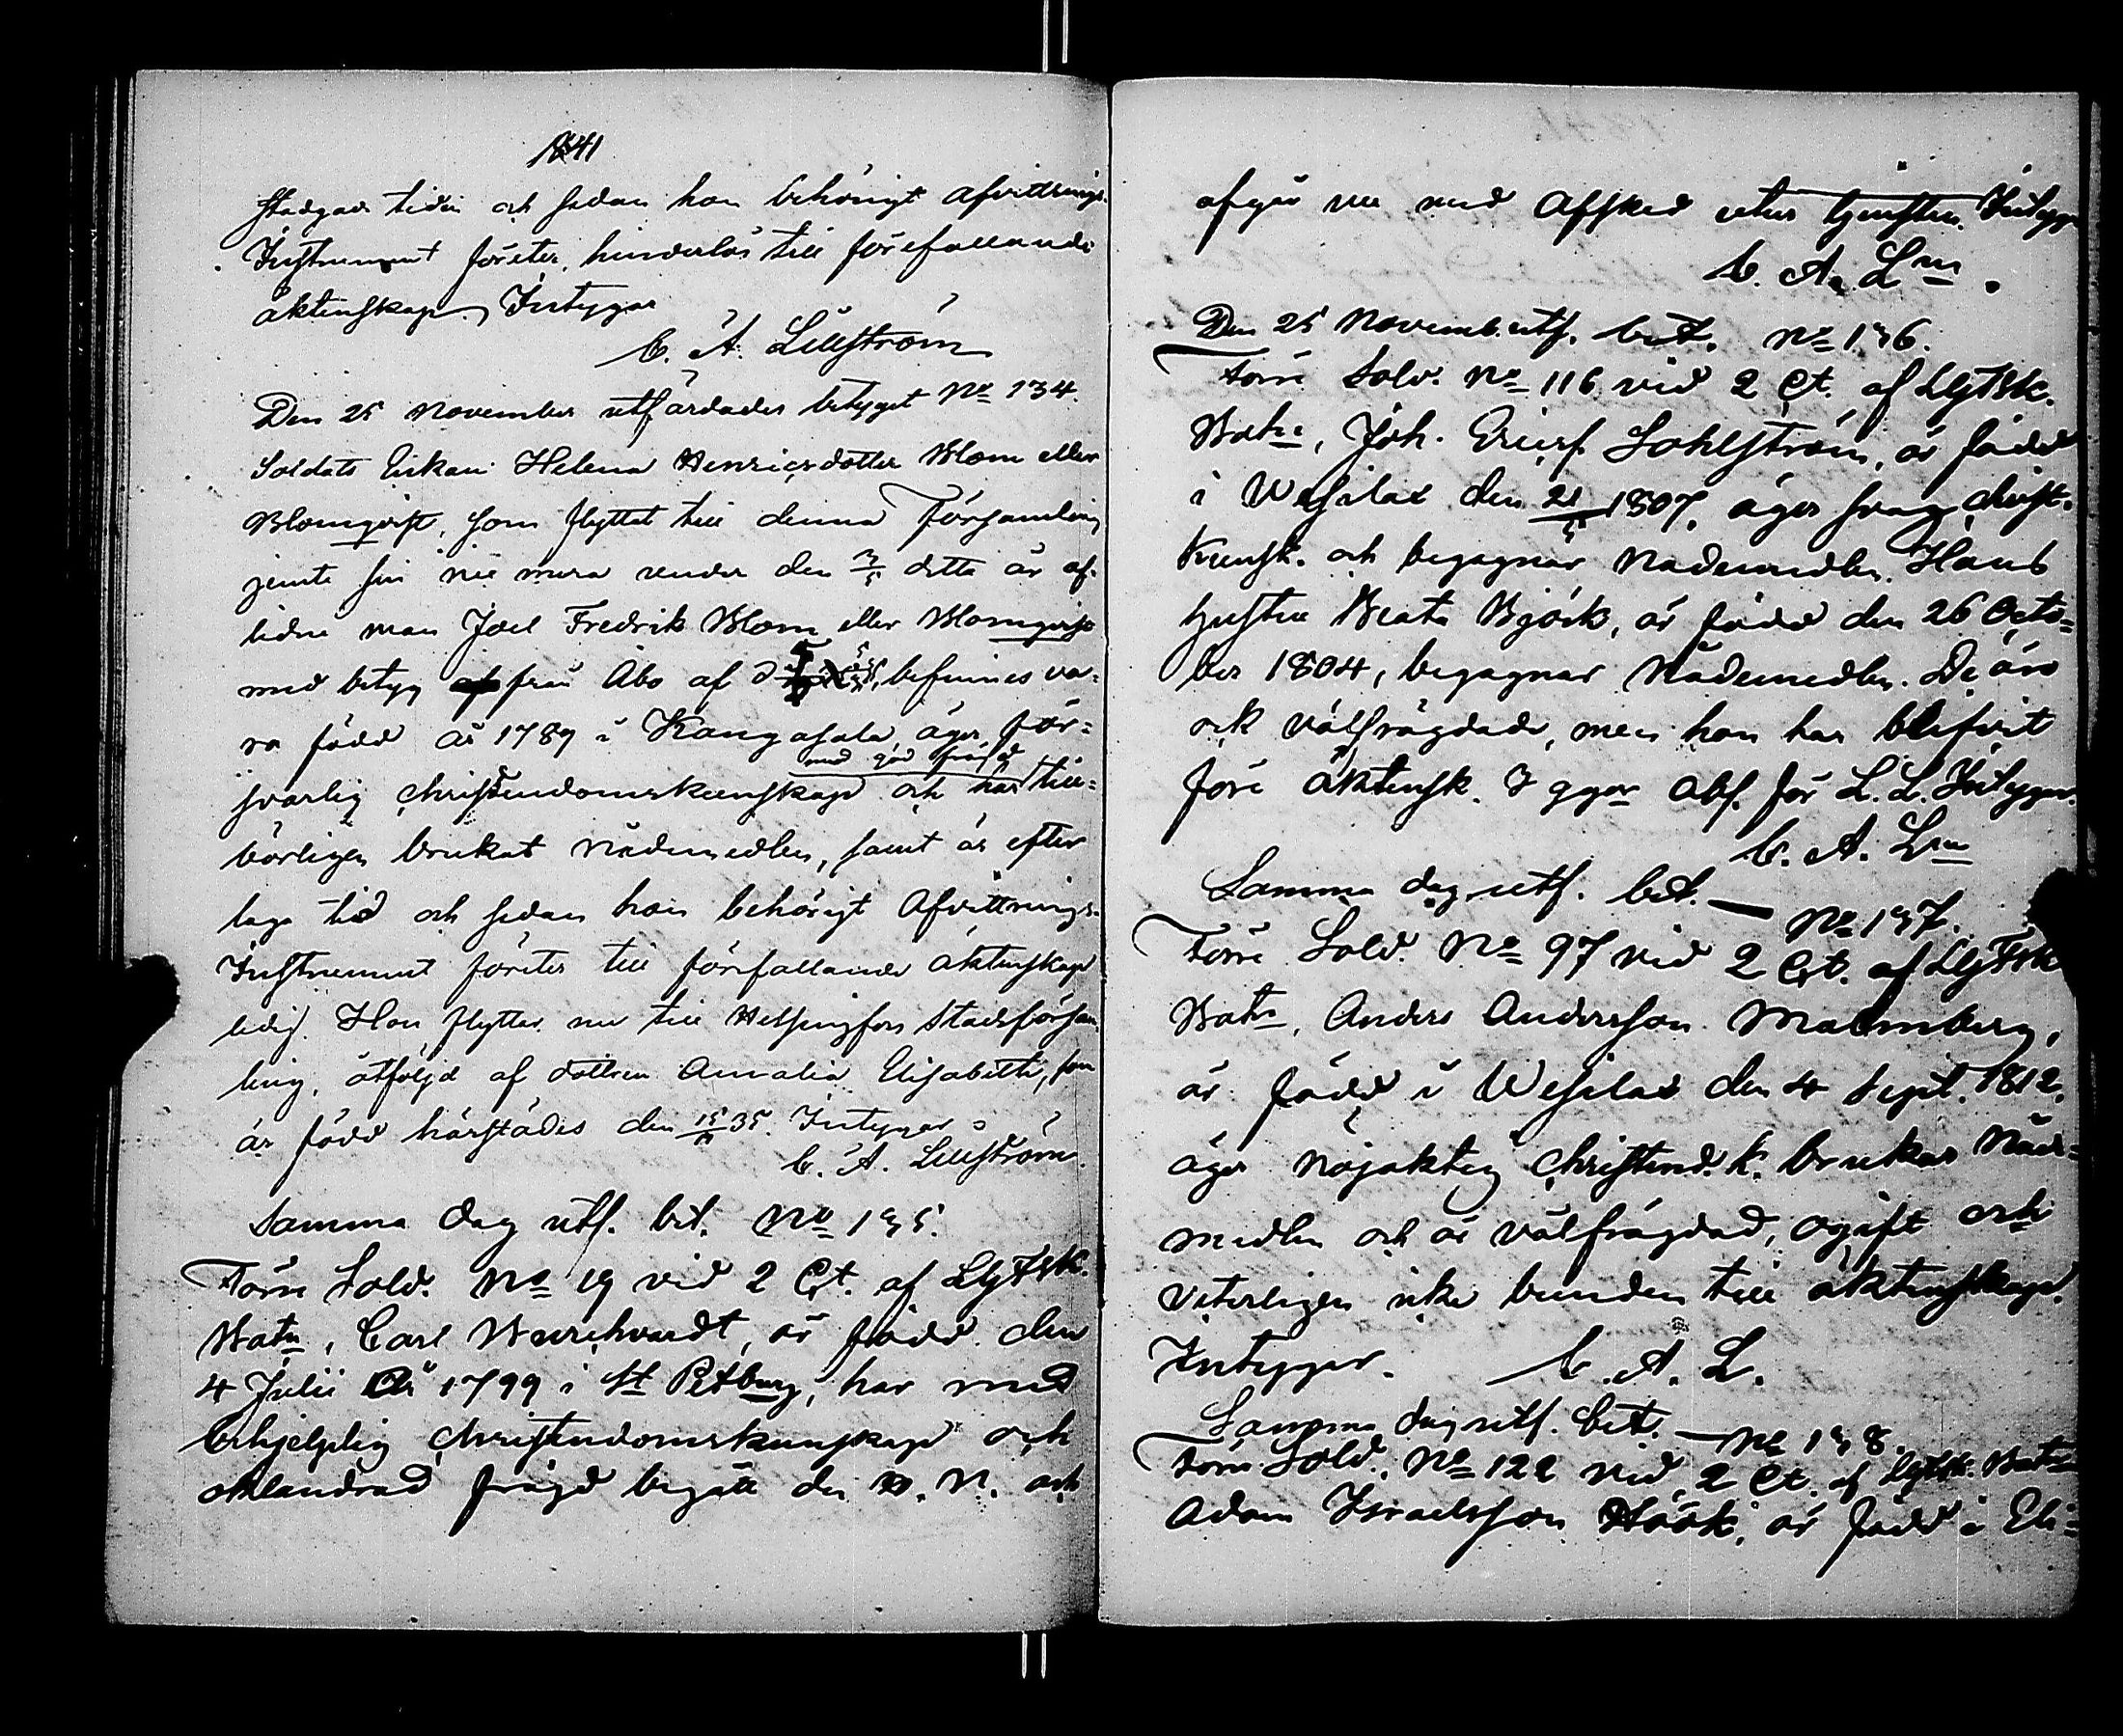 1841
stadgad tiden och sedan hon behörigt afvittrings-
Instrument företer, hinderlös till förefallande
äktenskap. Intygar
C. A. Lillström
Den 25 November utfärdades betyget No 134.
Soldats Enkan Helena Henricsdotter Blom eller
Blomqvist, som flyttat till denna Församling
jemte sin nu mera under den detta år af-
lidne man Joel Fredrik Blom eller Blomqvist
med betyg från Åbo af befinnes va-
ra född år 1789 i Kangasala, äger för-
med god frägd
svarlig christendomskunskap och har till-
börligen brukat nådemedlen, samt är efter
laga tid och sedan hon behörigt Afvittrings-
Instrument företer till förefallande äktenskap
ledig. Hon flyttar nu till Helsingfors Stadsförsam-
ling, åtföljd af dottren Amalia Elisabeth, som
är född härstädes den 35. Intygar
C. A. Lillström.
Samma dag utf. bet. No 135.
Förre Sold. No 19 vid 2 Ct. af LgFSk.
Batn, Carl, är född den
4 Julii År 1799 i St Petburg, har med
behjelplig christendomskunskap och
oklandrad frägd begått den H. N. och
afgår nu med Afsked utur tjensten. Intygar
C. A. Lm.
Den 25 Novemb. utf. bet. No 136.
Förre Sold. No 116 vid 2 Ct. af LgFSk.
Batn, Joh. Ericss. Sohlström, är född
i Wesilax den 1807, äger svag christ.
kunsk. och begagnar Nådemedlen. Hans
hustru Beata Björk, är född den 26 Octo=
ber 1804, begagnar Nådemedlen. De äro
ock välfrägdade, men hon har blifvit
före äktensk. 3 ggor abs. för L. L. Intygar.
C. A. Lm
Samma dag utf. bet. — No 137.
Förre Sold. No 97 vid 2 Ct. af LgFSk
Batn, Anders Andersson Malmberg,
är född i Wesilax den 4 Sept. 1812,
äger nöjaktig Christend. k. brukar Nåde=
medlen och är välfrägdad, ogift och
veterligen icke bunden till äktenskap.
Intygar. C. A. L.
Samma dag utf. bet. — No 138.
Förre Sold. No 122 vid 2 Ct. af LgFSk. Batn
Adam Israelsson Höök, är född i Eli=